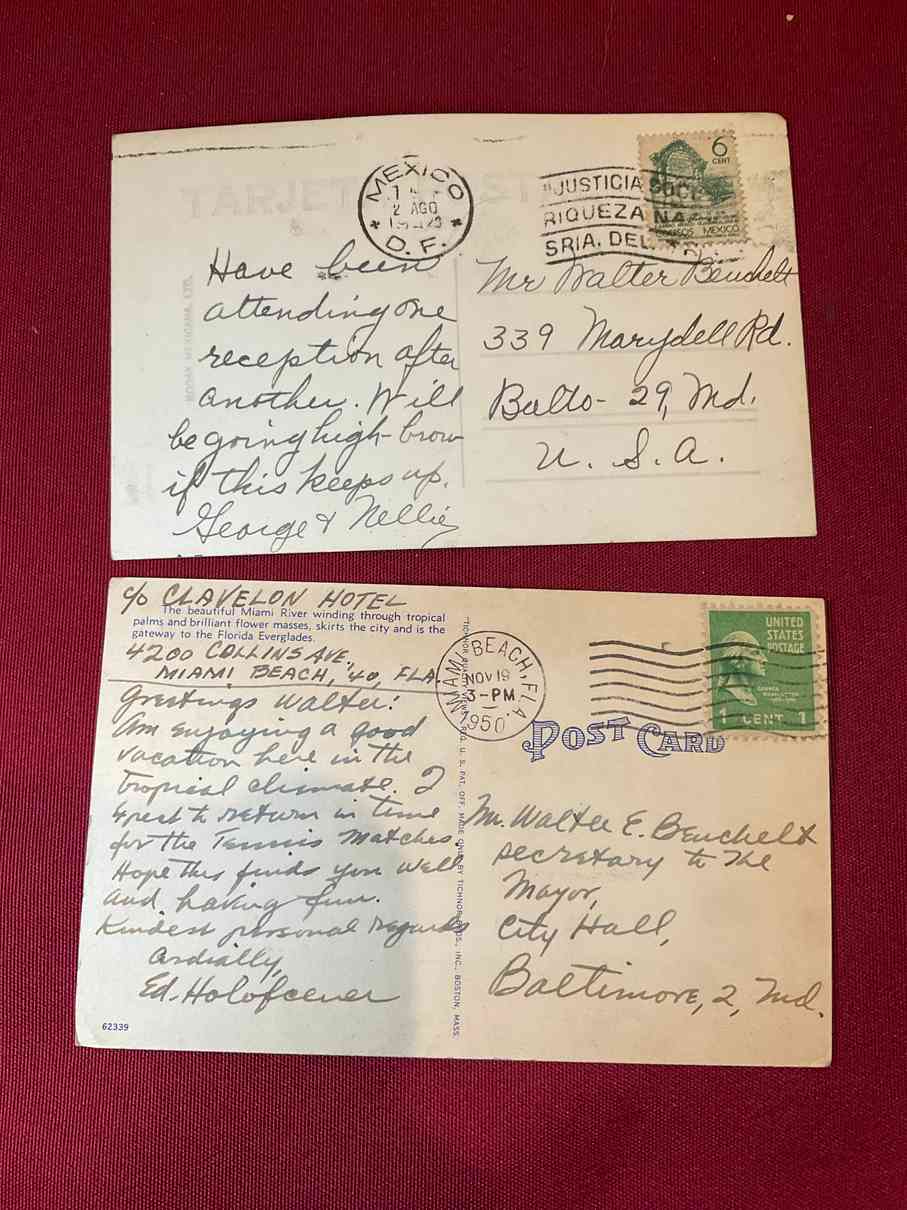 TARJET
MEXICO
2 AGO
D. F.
"JUSTICIA SOCI
RIQUEZA NA
SRIA. DEL
6
CENT
MEXICO
KODAK MEXICANA, LTD.
Have been
attending one
reception after
another. Will
be going high-brow
if this keeps up.
George & Nellie
Mr Walter Beuchelt
339 Marydell Rd.
Balto - 29, Md.
U. S. A.
c/o CLAVELON HOTEL
The beautiful Miami River winding through tropical
palms and brilliant flower masses, skirts the city and is the
gateway to the Florida Everglades.
4200 COLLINS AVE.,
MIAMI BEACH, 40, FLA.
Greetings Walter!
Am enjoying a good
vacation here in the
tropical climate. I
xpect to return in time
for the Tennis Matches.
Hope this finds you well
and having fun.
Kindest personal regards
Cordially,
Ed. Holofcener
62339
TICHNOR QUALITY VIEWS REG. U. S. PAT. OFF. MADE ONLY BY TICHNOR BROS., INC., BOSTON, MASS.
MIAMI BEACH, FLA.
NOV 19
3-PM
1950
UNITED
STATES
POSTAGE
GEORGE
WASHINGTON
1 CENT 1
POST CARD
Mr. Walter E. Beuchelt
secretary to the
Mayor,
City Hall,
Baltimore, 2, Md.